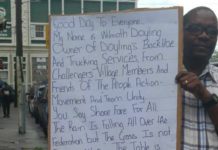 Good Day To Everyone.
My Name is Wilmoth Dayling
Owner of Dayling's Backhoe
And Trucking Services. From
Challengers Village Members And
Friends Of The People Action
Movement And Team Unity
You Say Share Fare For All
The Rain Is Falling All Over the
Federation but The Grass Is not
The Table is